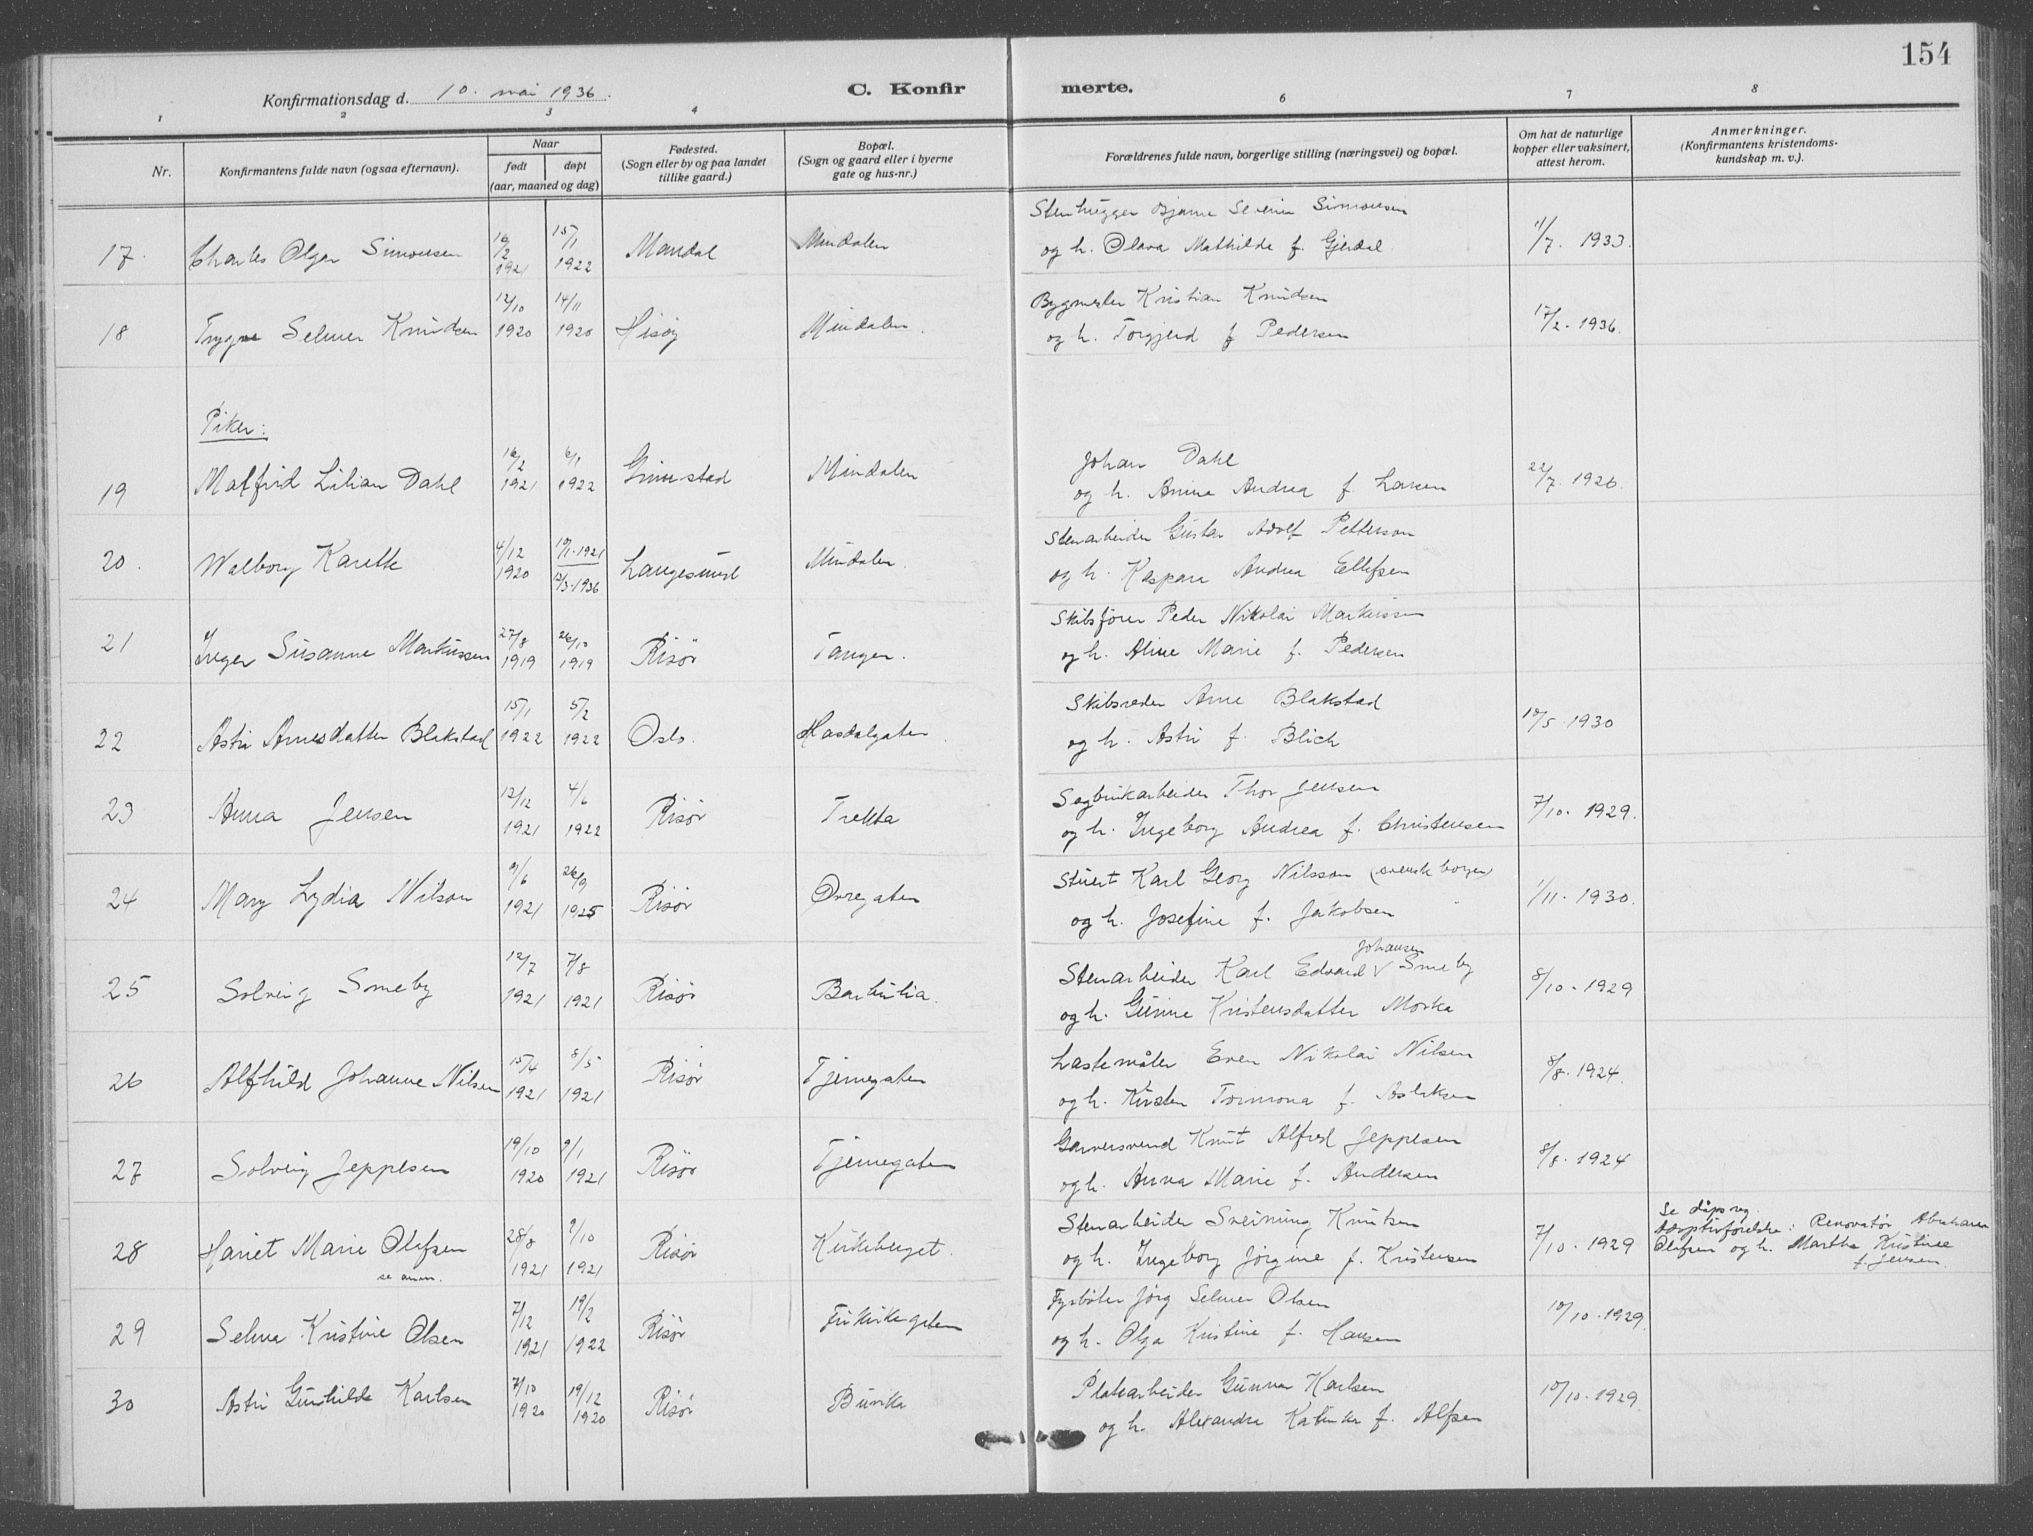 154
Konfirmationsdag d. 10. mai 1936.
C. Konfir merte.
1 2 3 4 6 7 8
Nr.
Konfirmantens fulde navn (ogsaa efternavn).
Naar
født døpt
(aar, maaned og dag)
Fødested.
(Sogn eller by og paa landet
tillike gaard.)
Bopæl.
(Sogn og gaard eller i byerne
gate og hus-nr.)
Forældrenes fulde navn, borgerlige stilling (næringsvei) og bopæl.
Om hat de naturlige
kopper eller vaksinert,
attest herom.
Anmerkninger.
(Konfirmantens kristendoms-
kundskap m. v.).
17. Charles Olger Simonsen 16/2 1921 15/1 1922 Mandal Mindalen
Stenhugger Bjarne Severin Simonsen
og h. Olava Mathilde f. Gjerdal 11/7. 1933.
18 Trygve Selmer Knudsen 12/10 1920 14/11 1920 Hisøy Mindalen.
Bygmester Kristian Knudsen
og h. Torgjerd f Pedersen 17/2. 1936.
Piker:
19 Malfrid Lilian Dahl 16/2 1921 6/1 1922 Grimstad Mindalen
Johan Dahl
og h. Anine Andrea f. Larsen 22/7. 1926.
20. Walborg Karette 4/12 1920 10/1. 1921 12/3. 1936 Langesund Mindalen.
Stenarbeider Gustav Adolf Petterson
og h. Kaspara Andrea Ellefsen
21 Inger Susanne Markussen 27/8 1919 26/10 1919 Risör Tangen.
Skibsfører Peder Nikolai Markussen
og h. Aline Marie f. Pedersen
22 Astri Arnesdatter Blakstad 15/1 1922 5/2 1922 Oslo. Hasdalgaten
Skibsreder Arne Blakstad
og h. Astri f. Blich 10/5. 1930
23 Anna Jensen 12/12 1921 4/6 1922 Risör Trekta
Sagbrukarbeider Thor Jensen
og h. Ingeborg Andrea f. Christensen 7/10. 1929.
24 Mary Lydia Nilson 9/6 1921 26/9 1925 Risör Øvregaten
Stuert Karl Georg Nilsson (svensk borger)
og h. Josefine f. Jakobsen 1/11. 1930.
25 Solveig Smeby 12/7 1921 7/8 1921 Risör Barbulia.
Johansen
Stenarbeider Karl Edvard V Smeby
og h. Gunne Kristensdatter Morka 8/10. 1929
26 Alfhild Johanne Nilsen 15/4 1921 8/5 1921 Risör Tjernegaten
Lastemåler Even Nikolai Nilsen
og h. Kirsten Tormona f. Aslaksen 8/8. 1924.
27 Solveig Jeppesen 19/10 1920 9/1 1921 Risör Tjernegaten
Garversvend Knut Alfred Jeppesen
og h. Anna Marie f. Andersen 8/8. 1924
28 Hariet Marie Olafsen 28/8 1921 9/10 1921 Risör Kirkehuget.
se anm.
Stenarbeider Sveinung Knutsen
og h. Ingeborg Jørgine f. Kristensen 7/10. 1929
Se dåpsreg.
Adoptivforeldre: Renovatør Abraham
Olafsen og h. Marthe Kristine
f. Jensen.
29 Selma Kristine Olsen 7/12 1921 19/2 1922 Risör
Fyrbøter Jörg Selmer Olsen
og h. Olga Kristine f. Hansen 10/10. 1929.
30 Astri Gunhilde Karlsen 7/10 1920 19/12 1920 Risör Buvika
Platearbeider Gunnar Karlsen
og h. Alexandra Katinka f. Alfsen 10/10. 1929.